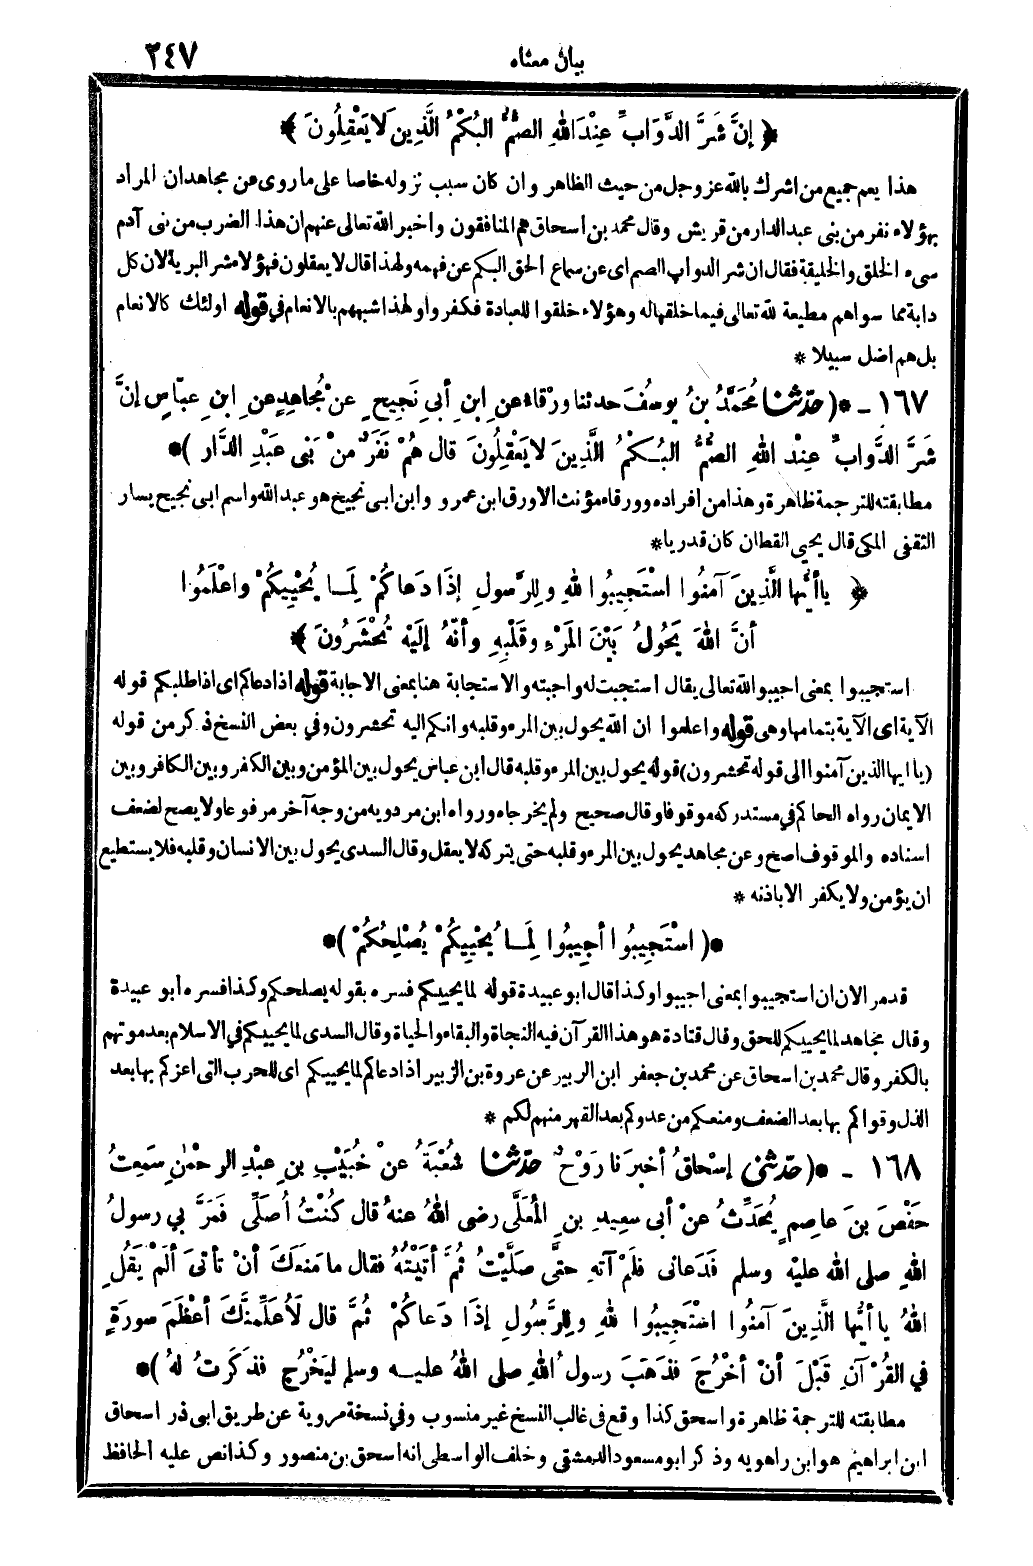 بيان معناه ٢٤٧
﴿ إِنَّ شَرَّ الدَّوَابِّ عِنْدَ اللهِ الصُّمُّ البُكْمُ الَّذِينَ لَا يَعْقِلُونَ ﴾
هذا يعم جميع من اشرك بالله عز وجل من حيث الظاهر وان كان سبب نزوله خاصا على ما روى عن مجاهد ان المراد
بهؤلاء نفر من بنى عبد الدار من قريش وقال محمد بن اسحاق هم المنافقون واخبر الله تعالى عنهم ان هذا الضرب من نى آدم
سىء الخلق والخليقة فقال ان شر الدواب الصم اى عن سماع الحق البكم عن فهمه ولهذا قال لا يعقلون فهؤلاء شر البرية لان كل
دابة مما سواهم مطيعة لله تعالى فيما خلقها له وهؤلاء خلقوا للعبادة فكفروا ولهذا شبههم بالانعام في قوله اولئك كالانعام
بل هم اضل سبيلا *
١٦٧ - *( حَدَّثَنَا مُحَمَّدُ بنُ يوسُفَ حدثنا ورْقاءُ عنِ ابنِ أبي نَجِيحٍ عنْ مُجاهِدٍ عنِ ابنِ عبَّاسٍ إنَّ
شَرَّ الدَّوابِّ عِنْدَ اللهِ الصُّمُّ البُكْمُ الَّذِينَ لا يَعْقِلُونَ قال هُمْ نَفَرٌ مِنْ بَنى عَبْدِ الدَّارِ )*
مطابقته للترجمة ظاهرة وهذا من افراده وورقاء مؤنث الاورق ابن عمرو وابن ابى نجيح هو عبد الله واسم ابى نجيح يسار
الثقفى المكى قال يحيى القطان كان قدريا *
﴿ يا أيُّها الَّذِينَ آمَنُوا اسْتَجِيبُوا للهِ ولِلرَّسُولِ إذَا دَعاكُمْ لِمَا يُحْيِيكُمْ واعْلَمُوا
أنَّ اللهَ يَحُولُ بَيْنَ المَرْءِ وقَلْبِهِ وأنَّهُ إلَيْهِ تُحْشَرُونَ ﴾
استجيبوا بمعنى اجيبوا الله تعالى يقال استجبت له واجبته والاستجابة هنا بمعنى الاجابة قوله اذا دعاكم اى اذا طلبكم قوله
الآية اى الآية بتمامها وهى قوله واعلموا ان الله يحول بين المرء وقلبه وانكم اليه تحشرون وفي بعض النسخ ذكر من قوله
(يا ايها الذين آمنوا الى قوله تحشرون) قوله يحول بين المرء وقلبه قال ابن عباس يحول بين المؤمن وبين الكفر وبين الكافر وبين
الايمان رواه الحاكم في مستدركه موقوفا وقال صحيح ولم يخرجاه ورواه ابن مردويه من وجه آخر مرفوعا ولا يصح لضعف
اسناده والموقوف اصح وعن مجاهد يحول بين المرء وقلبه حتى يتركه لا يعقل وقال السدى يحول بين الانسان وقلبه فلا يستطيع
ان يؤمن ولا يكفر الا باذنه *
*( اسْتَجِيبُوا أجِيبُوا لِمَا يُحْيِيكُمْ يُصْلِحُكُمْ )*
قد مر الان ان استجيبوا بمعنى اجيبوا وكذا قال ابو عبيدة قوله لما يحييكم فسره بقوله يصلحكم وكذا فسره أبو عبيدة
وقال مجاهد لما يحييكم للحق وقال قتادة هو هذا القرآن فيه النجاة والبقاء والحياة وقال السدى لما يحييكم في الاسلام بعد موتهم
بالكفر وقال محمد بن اسحاق عن محمد بن جعفر ابن الزبير عن عروة بن الزبير اذا دعاكم لما يحييكم اى للحرب التى اعزكم بها بعد
الذل وقواكم بها بعد الضعف ومنعكم من عدوكم بعد القهر منهم لكم *
١٦٨ - *( حَدَّثَنى إسْحاقُ أخبرَنا رَوْحٌ حَدَّثَنا شُعْبَةُ عنْ خُبَيْبِ بنِ عبْدِ الرحْمٰنِ سَمِعْتُ
حَفْصَ بنَ عاصِمٍ يُحَدِّثُ عنْ أبى سعِيدِ بنِ المُعَلَّى رضى اللهُ عنهُ قال كُنْتُ أُصَلِّى فَمَرَّ بي رسولُ
اللهِ صلى الله عليْه وسلم فَدَعانى فلَمْ آتِهِ حتَّى صلَّيْتُ ثُمَّ أتَيْتُهُ فقال ما مَنَعَكَ أنْ تأتىَ ألَمْ يَقُلِ
اللهُ يا أيُّها الَّذِينَ آمَنُوا اسْتَجِيبُوا للهِ ولِلرَّسُولِ إذَا دَعاكُمْ ثُمَّ قال لَأُعَلِّمَنَّكَ أعْظَمَ سورَةٍ
في القُرْآنِ قَبْلَ أنْ أخْرُجَ فذَهَبَ رسولُ اللهِ صلى اللهُ عليه وسلم لِيَخْرُجَ فذَكَرتُ لهُ )*
مطابقته للترجمة ظاهرة واسحق كذا وقع فى غالب النسخ غير منسوب وفي نسخة مروية عن طريق ابى ذر اسحاق
ابن ابراهيم هو ابن راهويه وذكر ابو مسعود الدمشقى وخلف الواسطى انه اسحق بن منصور وكذا نص عليه الحافظ